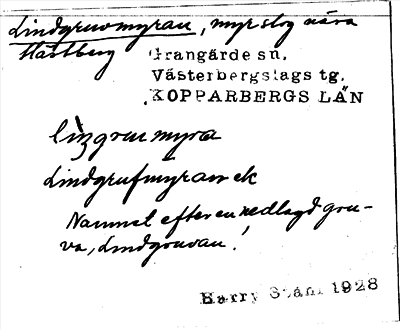 Lindgruvmyran, myrslog nära
Hästberg
Grangärde sn.
Västerbergslags tg.
KOPPARBERGS LÄN
lìŋgruvmyra
Lindgrufmyran ek
Namnet efter en nedlagd gru-
va, Lindgruvan!
Harry Ståhl 1928